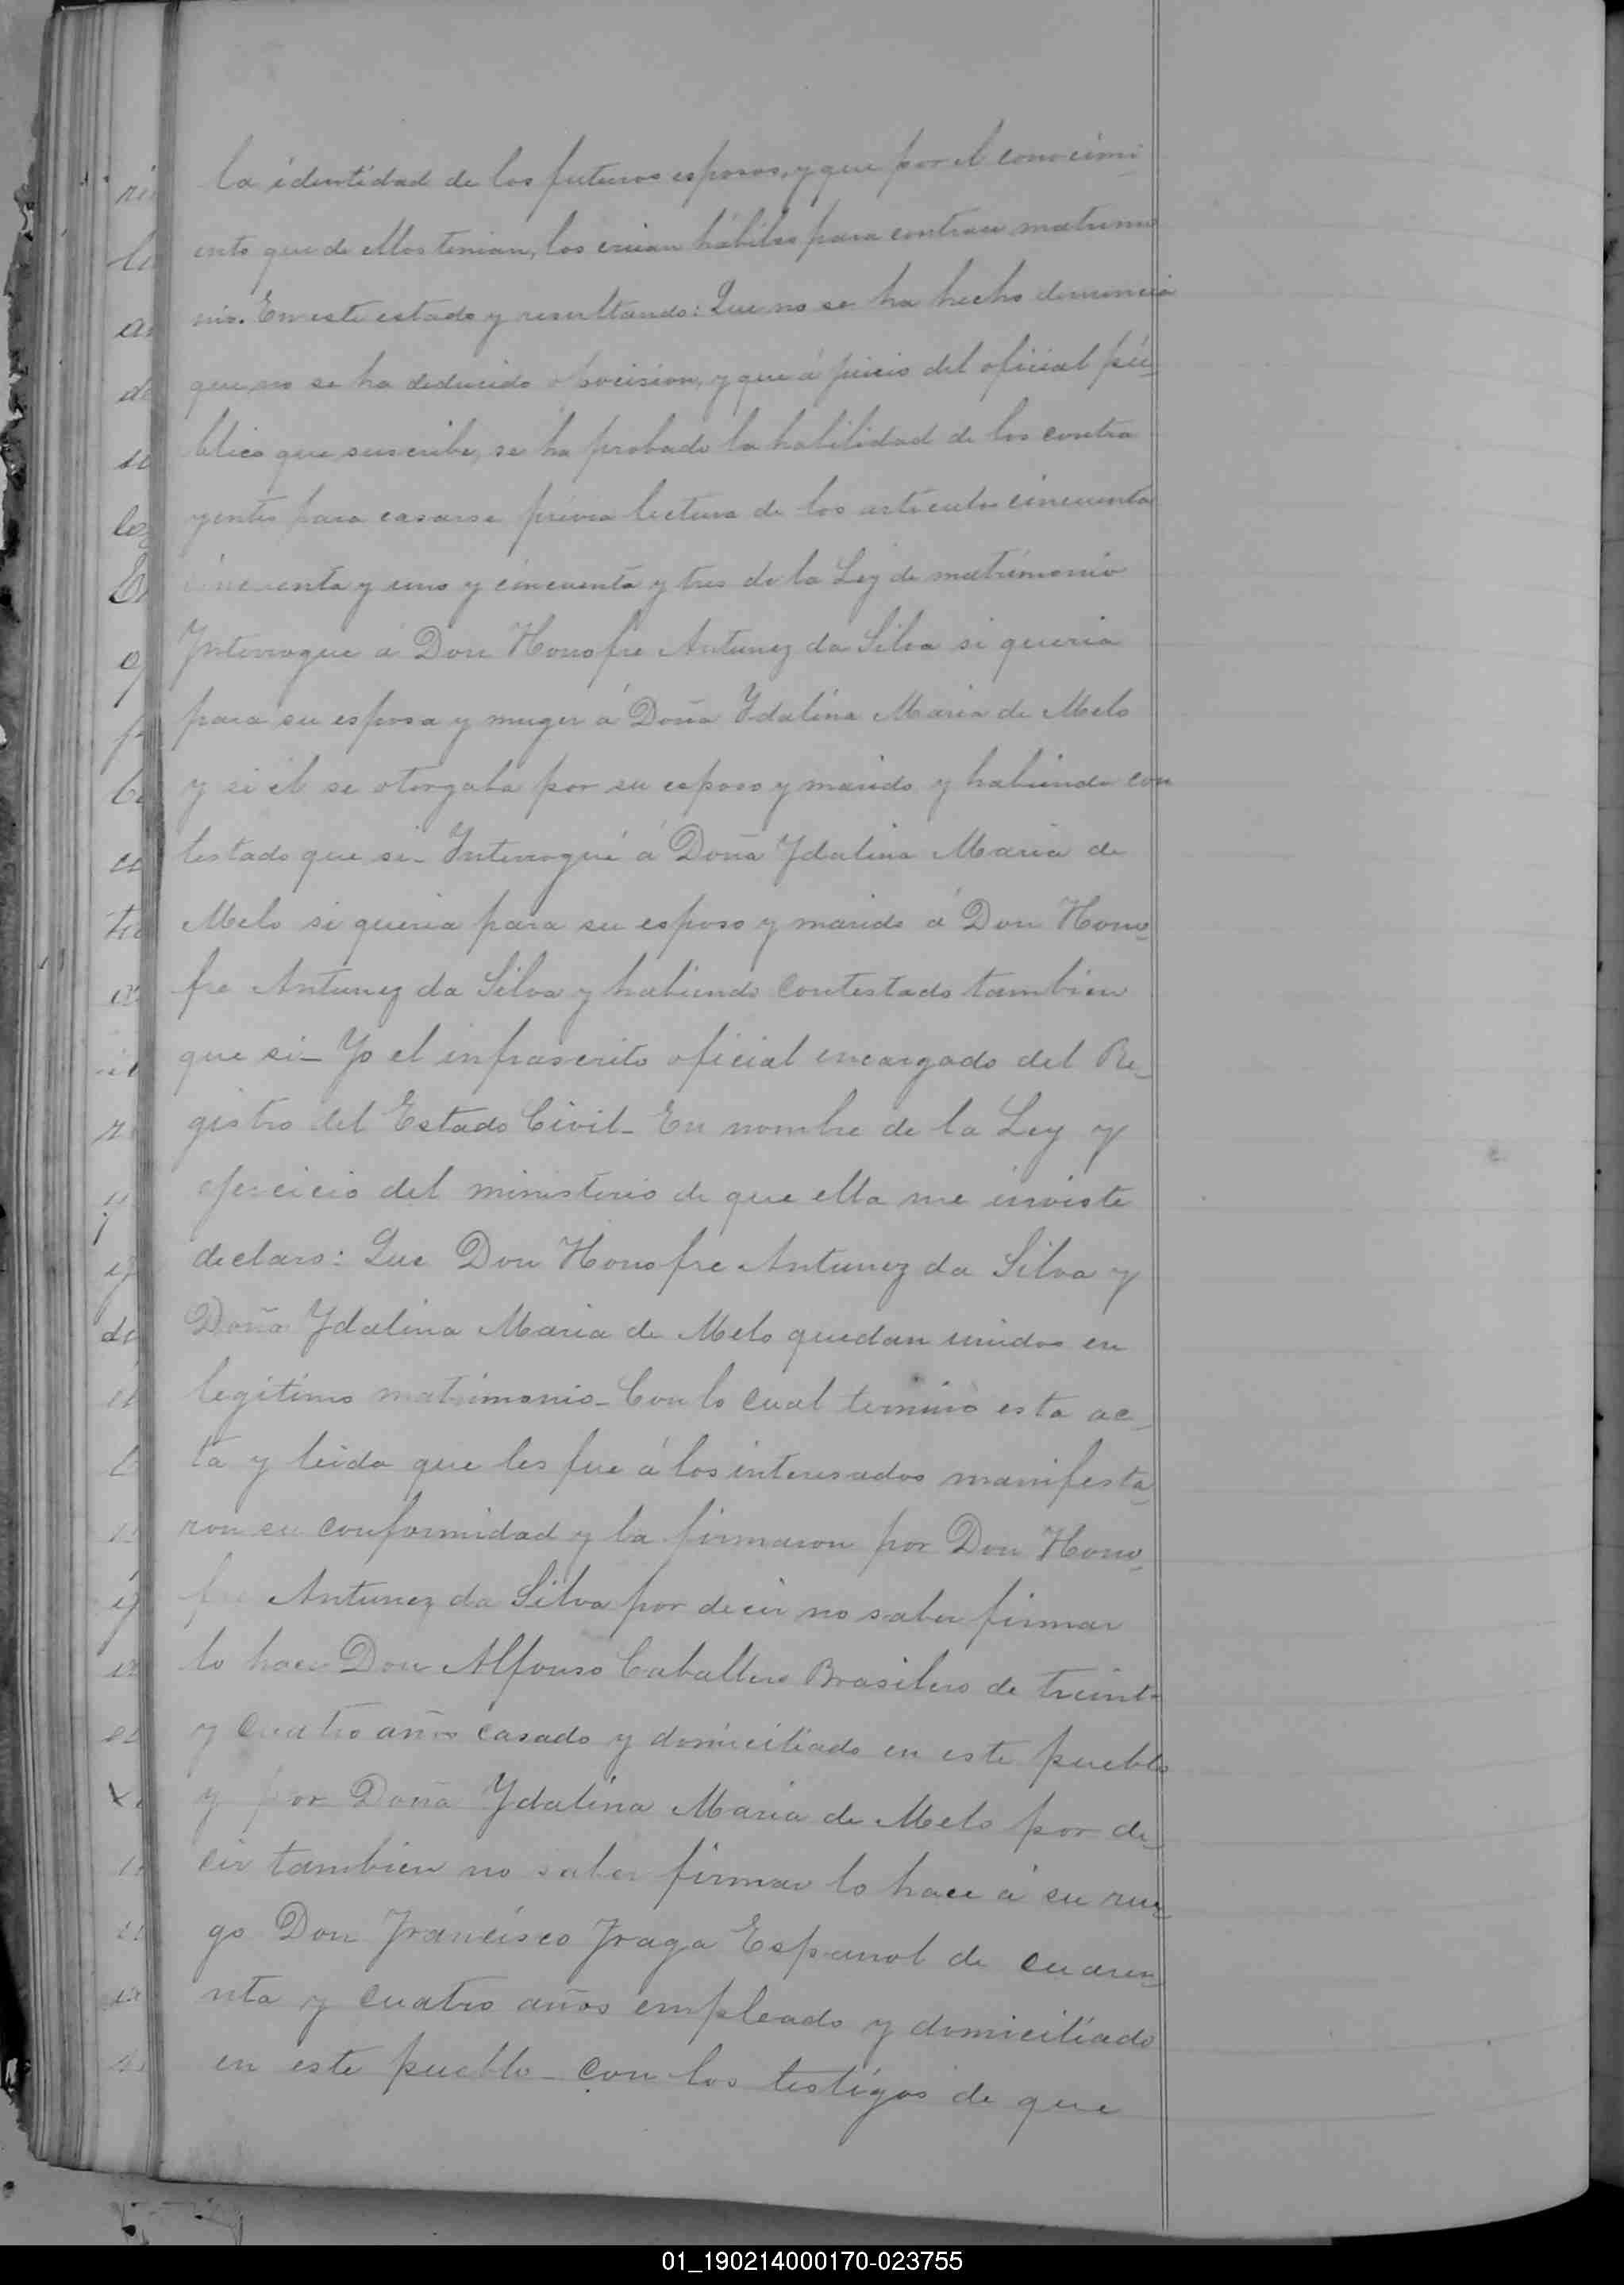 la identidad de los futuros esposos, y que por el conocimi
ento que de ellos tenian, los creian hábiles para contraer matrimo
nio. En este estado y resultando: Que no se ha hecho denuncia
que no se ha deducido opocision, y que á juicio del oficial pú-
blico que suscribe, se ha probado la habilidad de los contra
yentes para casarse prévia lectura de los articulos cincuenta
cincuenta y uno y cincuenta y tres de la Ley de matrimonio
Interrogue á Don Honofre Antunez da Silva si queria
para su esposa y muger á Doña Ydalina Maria de Melo
y si él se otorgaba por su esposo y marido y habiendo con
testado que si_ Interrogué á Doña Ydalina Maria de
Melo si queria para su esposo y marido á Don Hono-
fre Antunez da Silva y habiendo contestado tambien
que si_ Yo el infrascrito oficial encargado del Re-
gistro del Estado Civil_ En nombre de la Ley y
ejercicio del ministerio de que ella me inviste
declaro: Que Don Honofre Antunez da Silva y
Doña Ydalina Maria de Melo quedan unidos en
legitimo matrimonio_ Con lo cual terminó esta ac-
ta y leida que les fue á los interesados manifesta-
ron su conformidad y la firmaron por Don Hono-
fre Antunez da Silva por decir no saber firmar
lo hace Don Alfonso Caballero Brasilero de treinta
y cuatro años casado y domiciliado en este pueblo
y por Doña Ydalina Maria de Melo por de-
cir tambien no saber firmar lo hace á su rue-
go Don Francisco Fraga Español de cuaren-
nta y cuatro años empleado y domiciliado
en este pueblo_ con los testigos de que
01_190214000170-023755